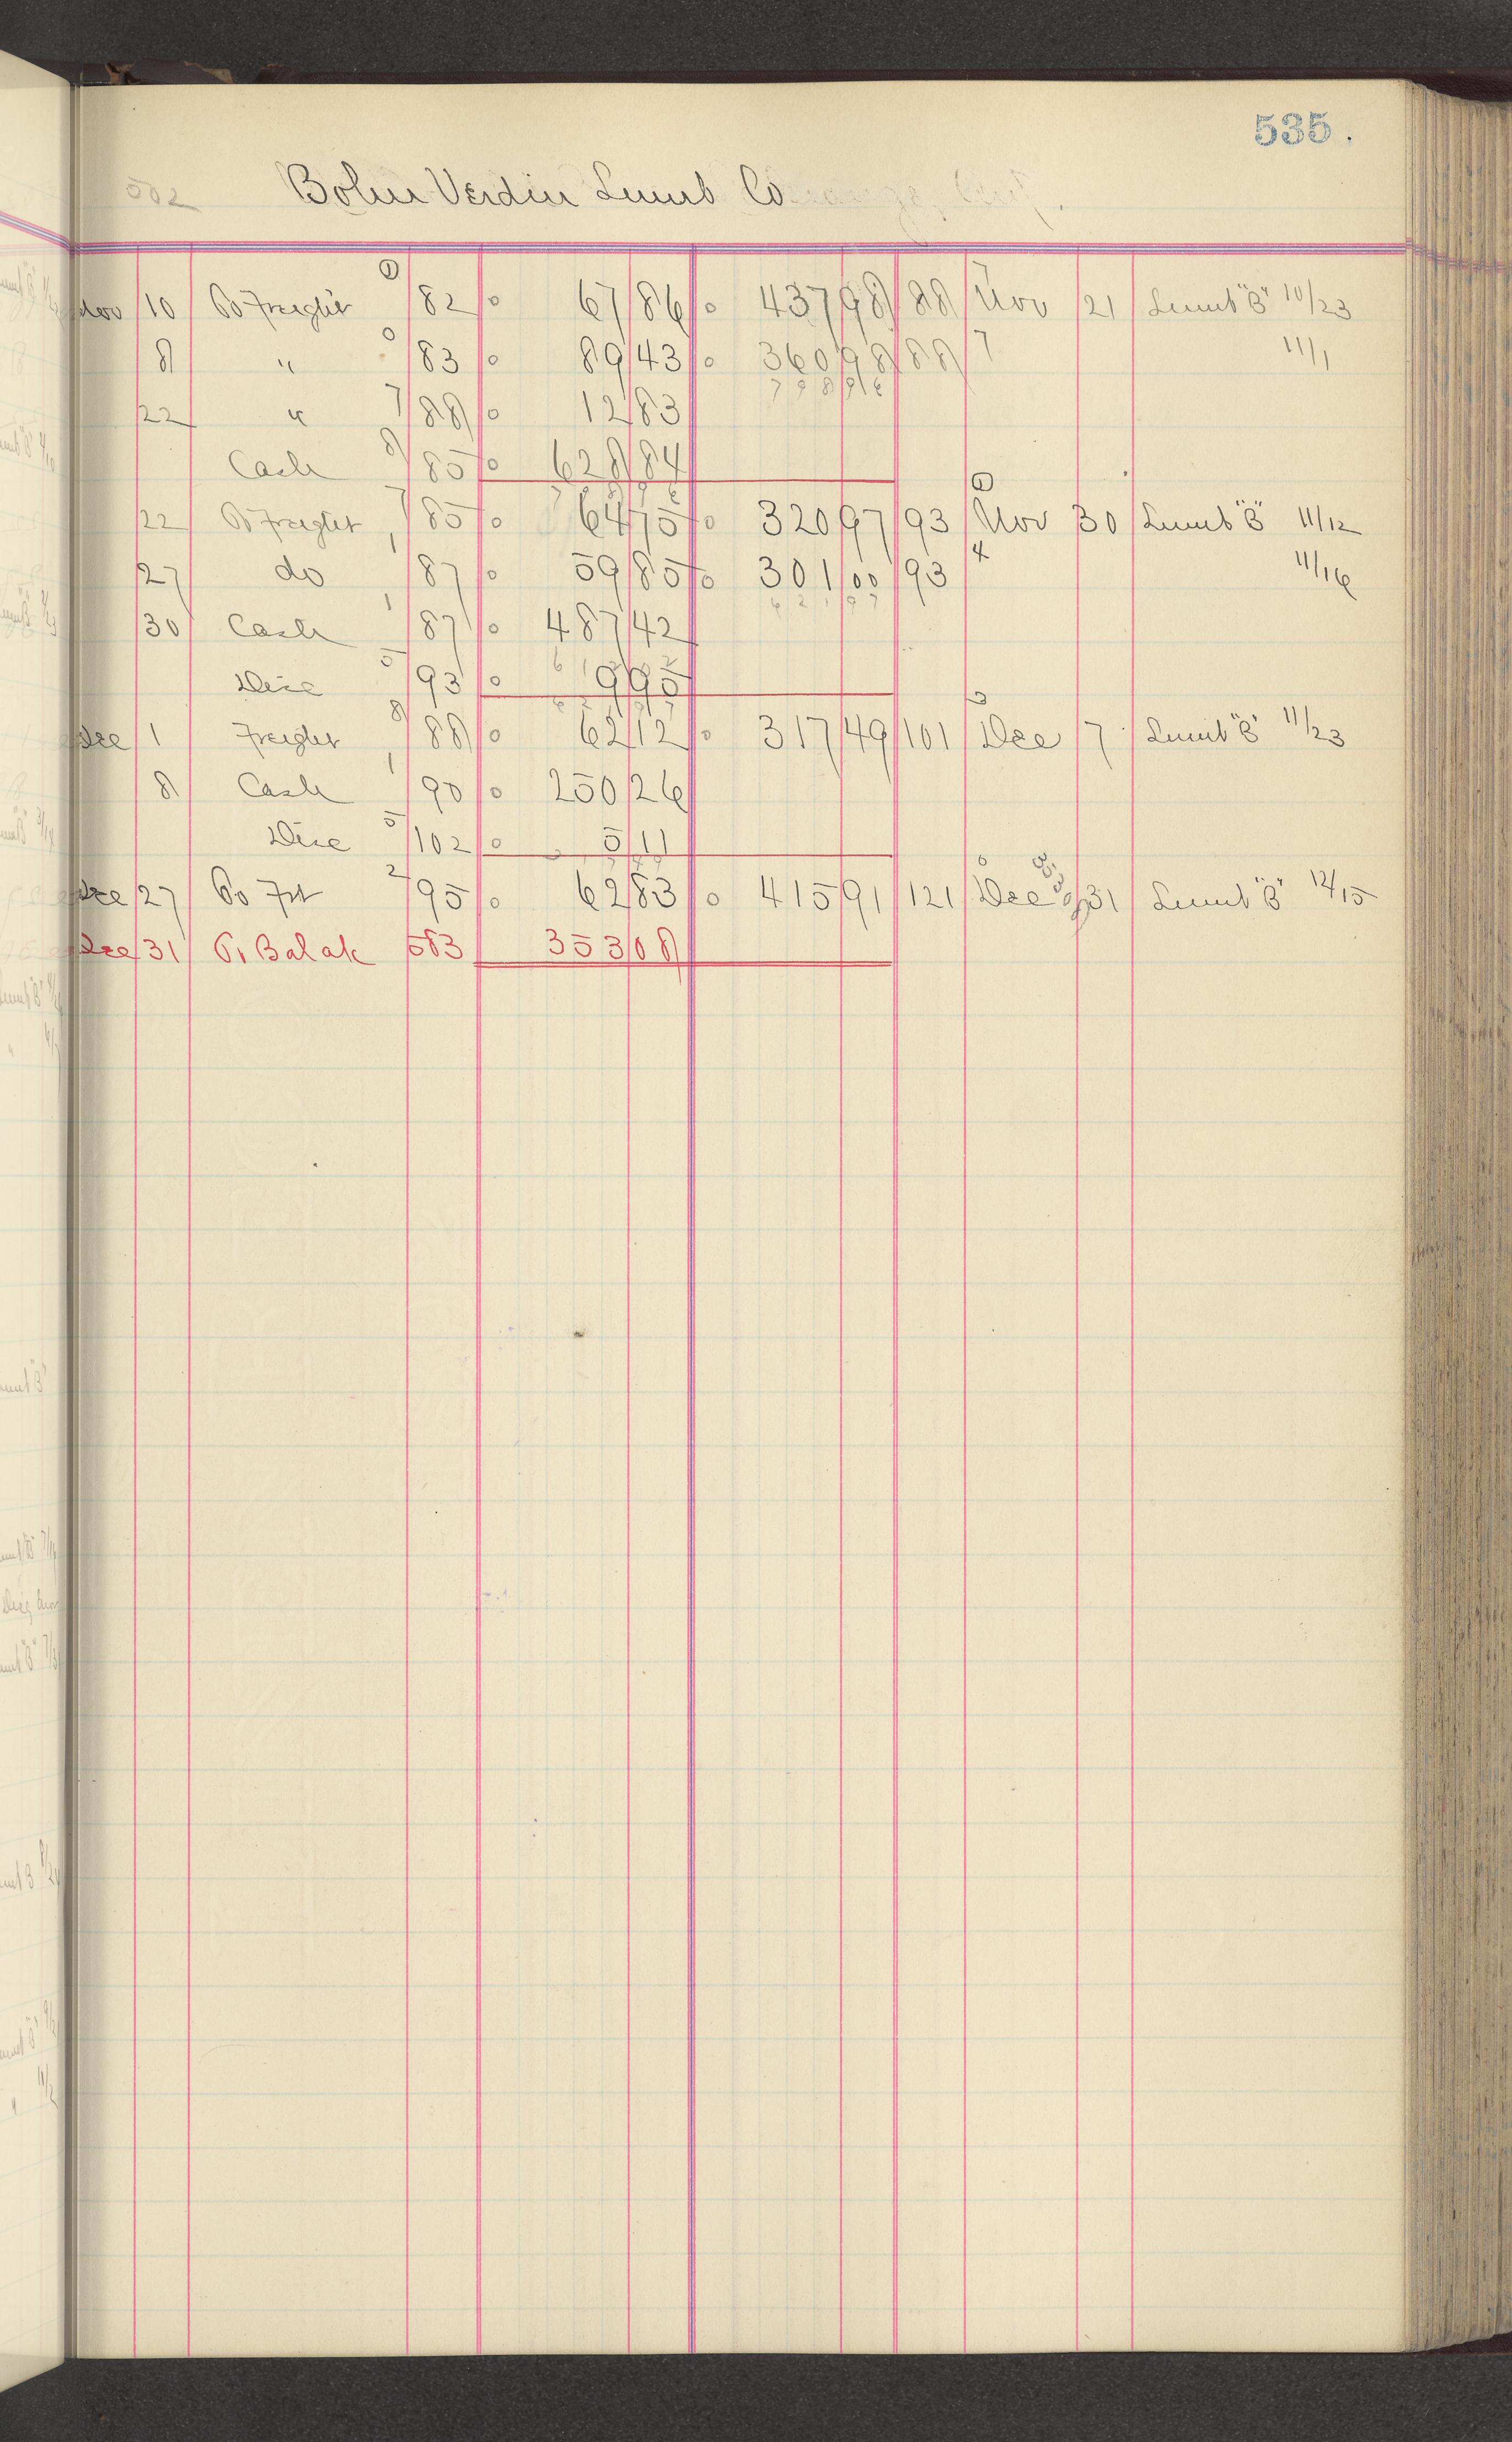 535.
502 Bolin Verdin Lumb Co
Nov 10 To Freight 82 67 86 437 98 88 Nov 21 Lumb "B" 10/23
8 " 83 89 43 360 98 88 11/1
798 96
22 " 88 12 83
Cash 85 628 84
22 To Freight 85 64 75 320 97 93 Nov 30 Lumb "B" 11/12
27 do 87 59 85 301 00 93 11/16
621 97
30 Cash 87 487 42
Disc 93 9 95
Dec 1 Freight 88 62 12 317 49 101 Dec 7 Lumb "B" 11/23
8 Cash 90 250 26
Disc 102 5 11
Dec 27 To Frt 95 62 83 415 91 121 Dec 31 Lumb "B" 12/15
Dec 31 To Bal ak 583 353 08